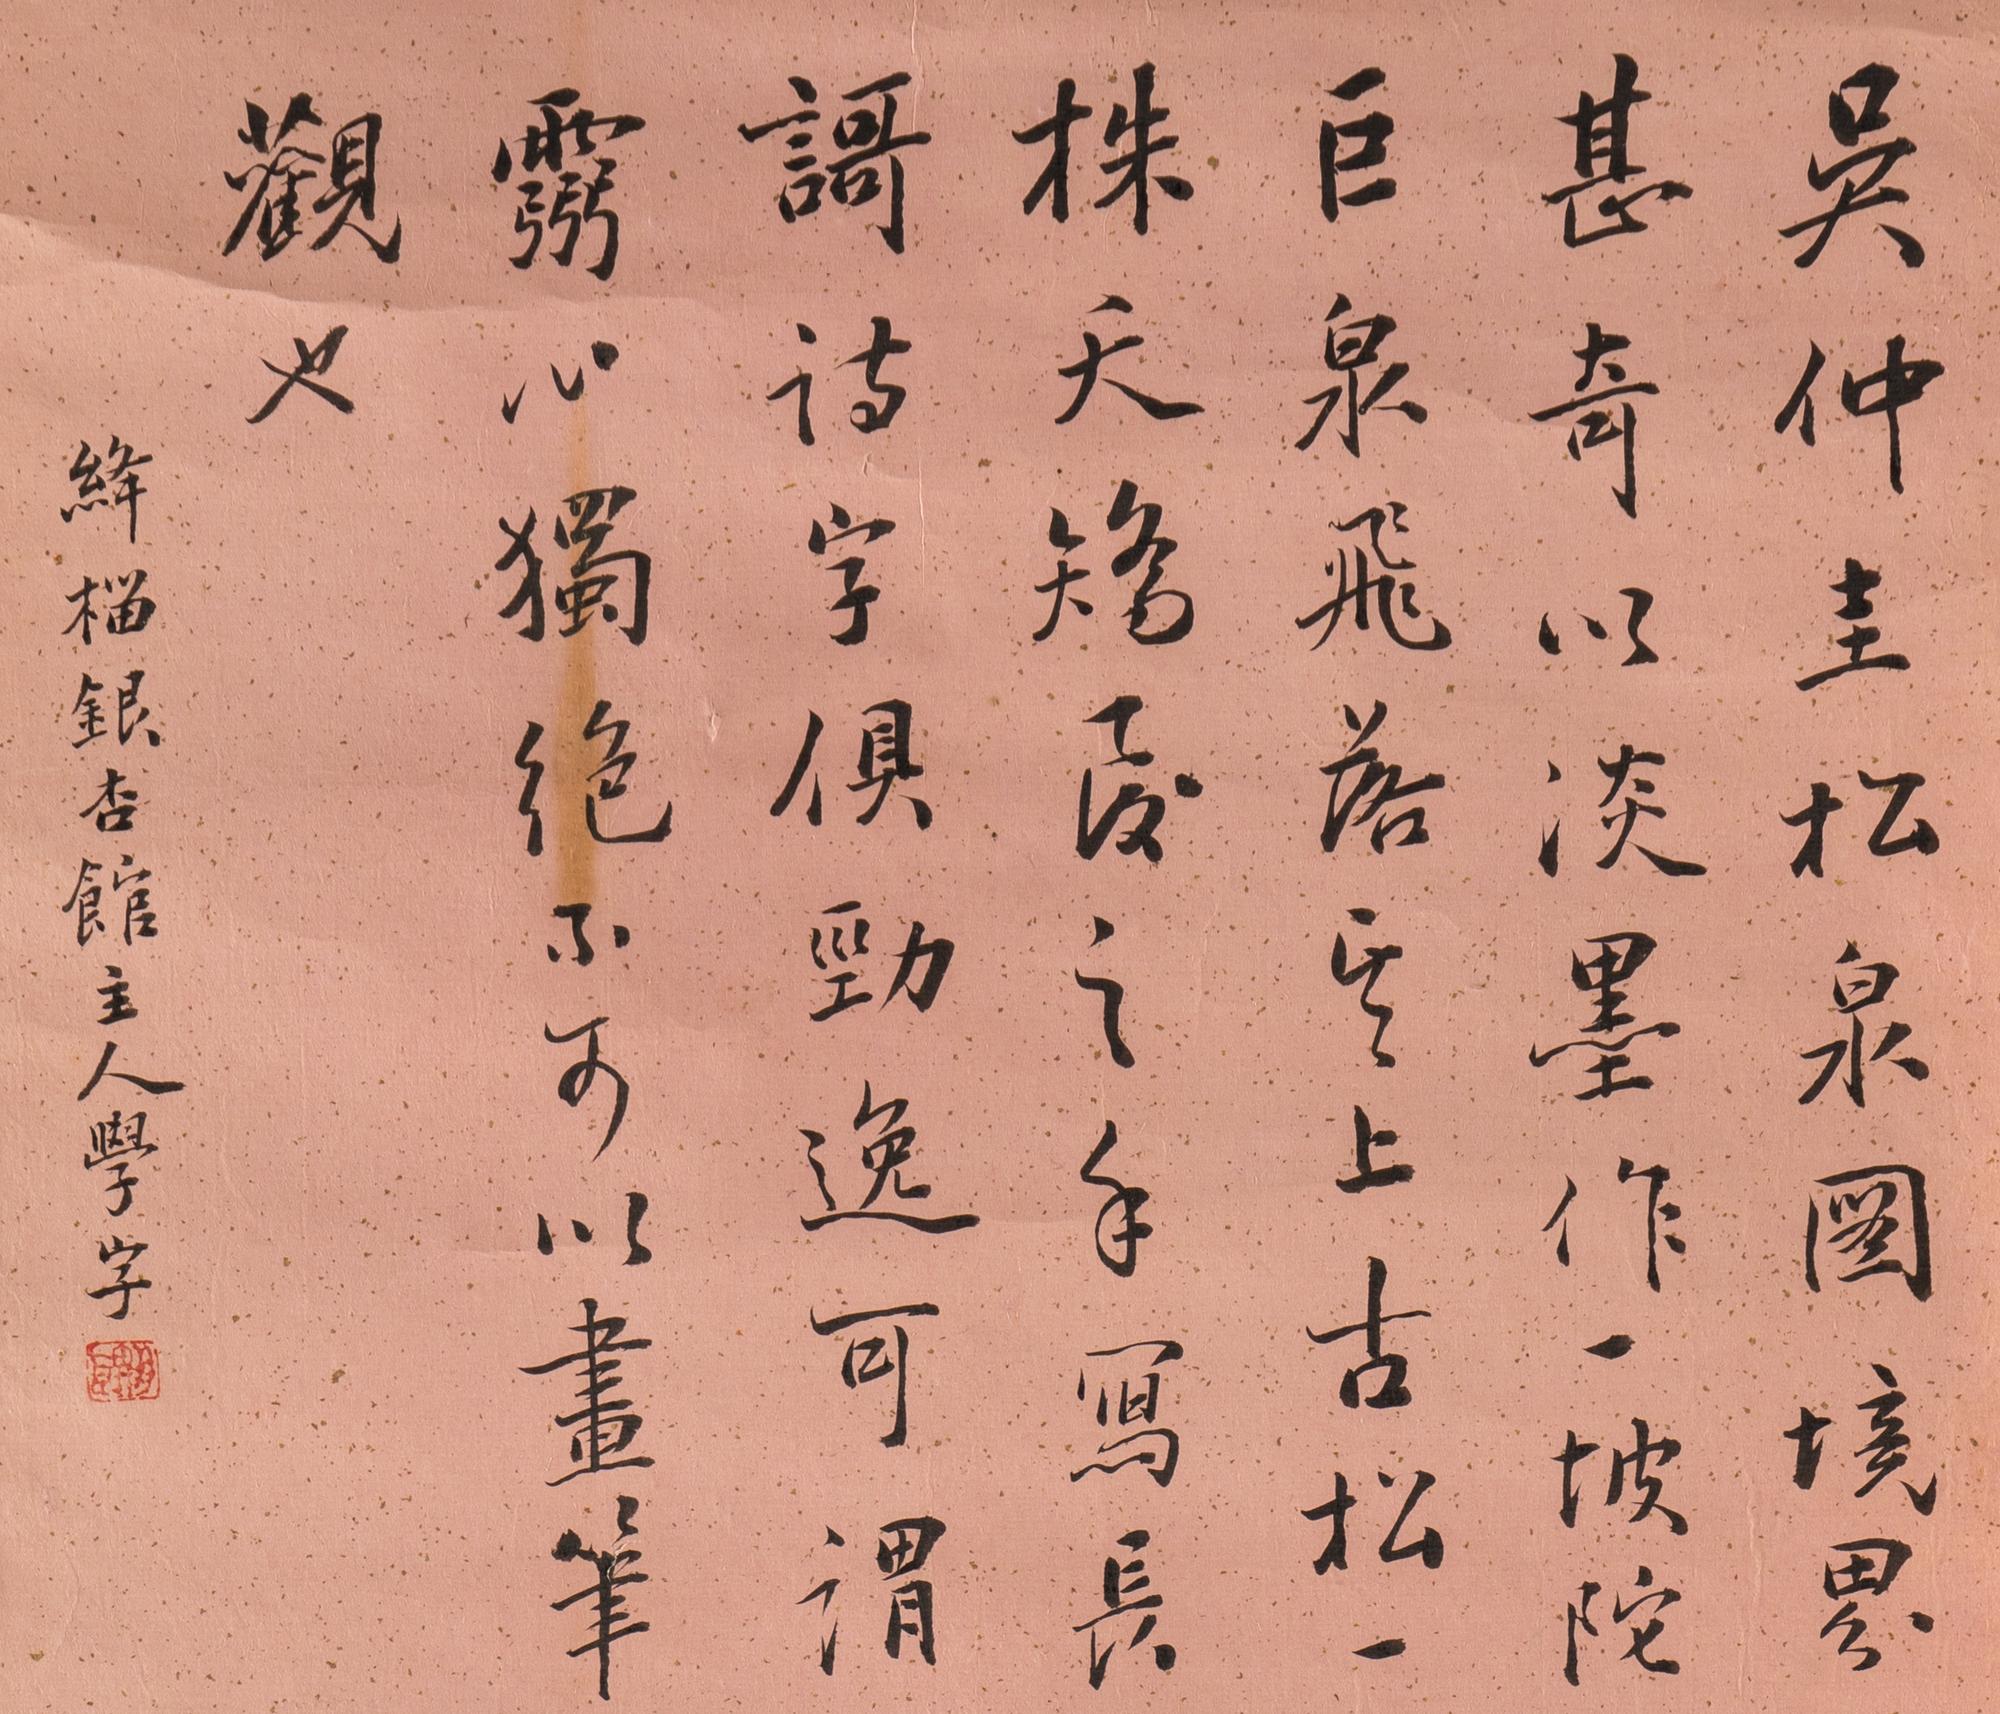 吳仲圭松泉圖境界
甚奇以淡墨作一坡陀
巨泉飛落其上古松一
株夭矯覆之手寫長
謌詩字俱勁逸可謂
靈心獨絕不可以畫筆
觀也
絳榴銀杏館主人學字